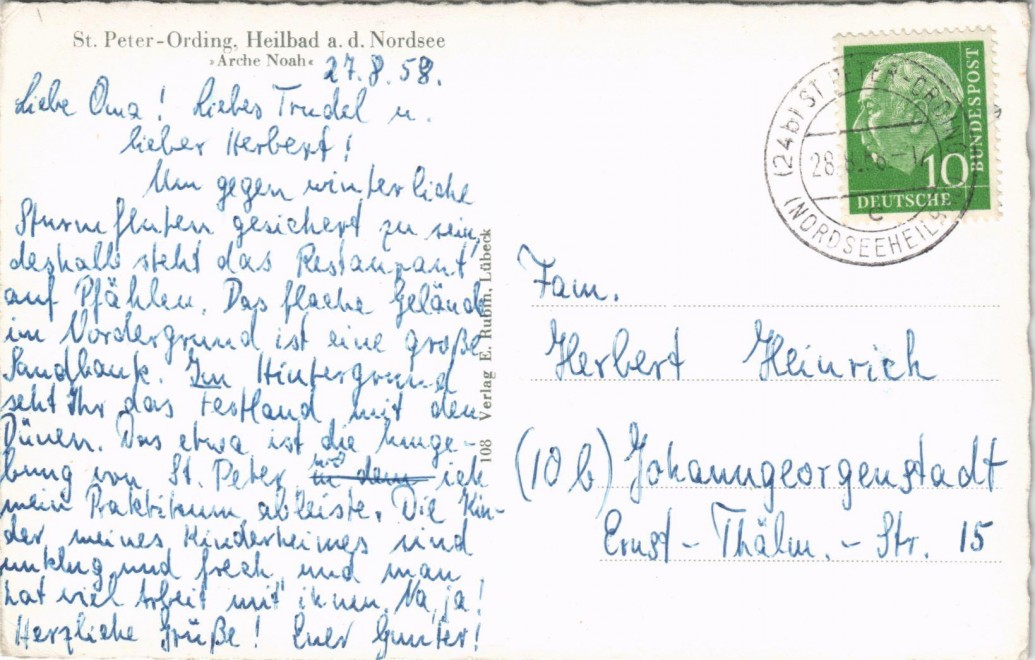 St. Peter-Ording, Heilbad a. d. Nordsee
»Arche Noah«
27.8.58.
Liebe Oma! Liebes Trudel u.
lieber Herbert!
Um gegen winterliche
Sturmfluten gesichert zu sein,
deshalb steht das Restaurant
auf Pfählen. Das flache Gelände
im Vordergrund ist eine große
Sandbank. Im Hintergrund
seht Ihr das Festland mit den
Dünen. Das etwa ist die Umge-
bung von St. Peter, wo in dem ich
mein Praktikum ableiste. Die Kin-
der meines Kinderheimes sind
unklug und frech, und man
hat viel Arbeit mit ihnen. Na, ja!
Herzliche Grüße! Euer Gunter!
108 Verlag E. Rubin, Lübeck
(24b) ST. PETER-ORDING
28.8.58-1
c
(NORDSEEHEILB
10
DEUTSCHE
BUNDESPOST
Fam.
Herbert Heinrich
(10b) Johanngeorgenstadt
Ernst-Thälm.-Str. 15